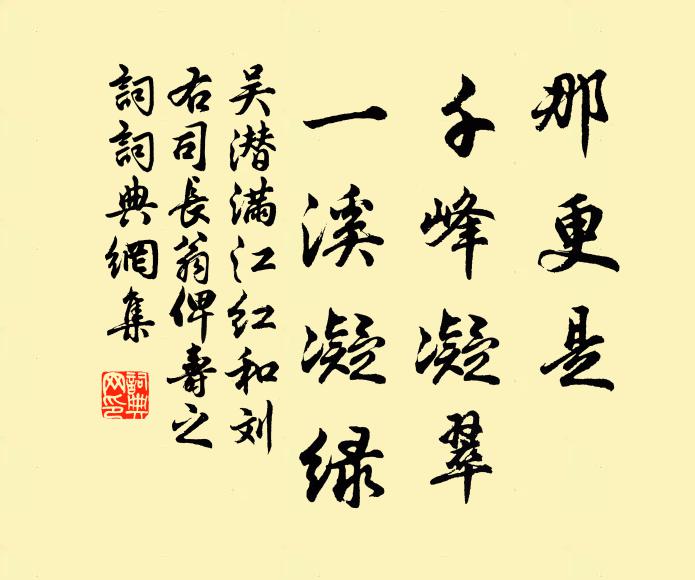 那更是
千峰凝翠
一溪凝绿
吴潜满江红和刘
右司长翁俾寿之
词词典网集
詞典
网印